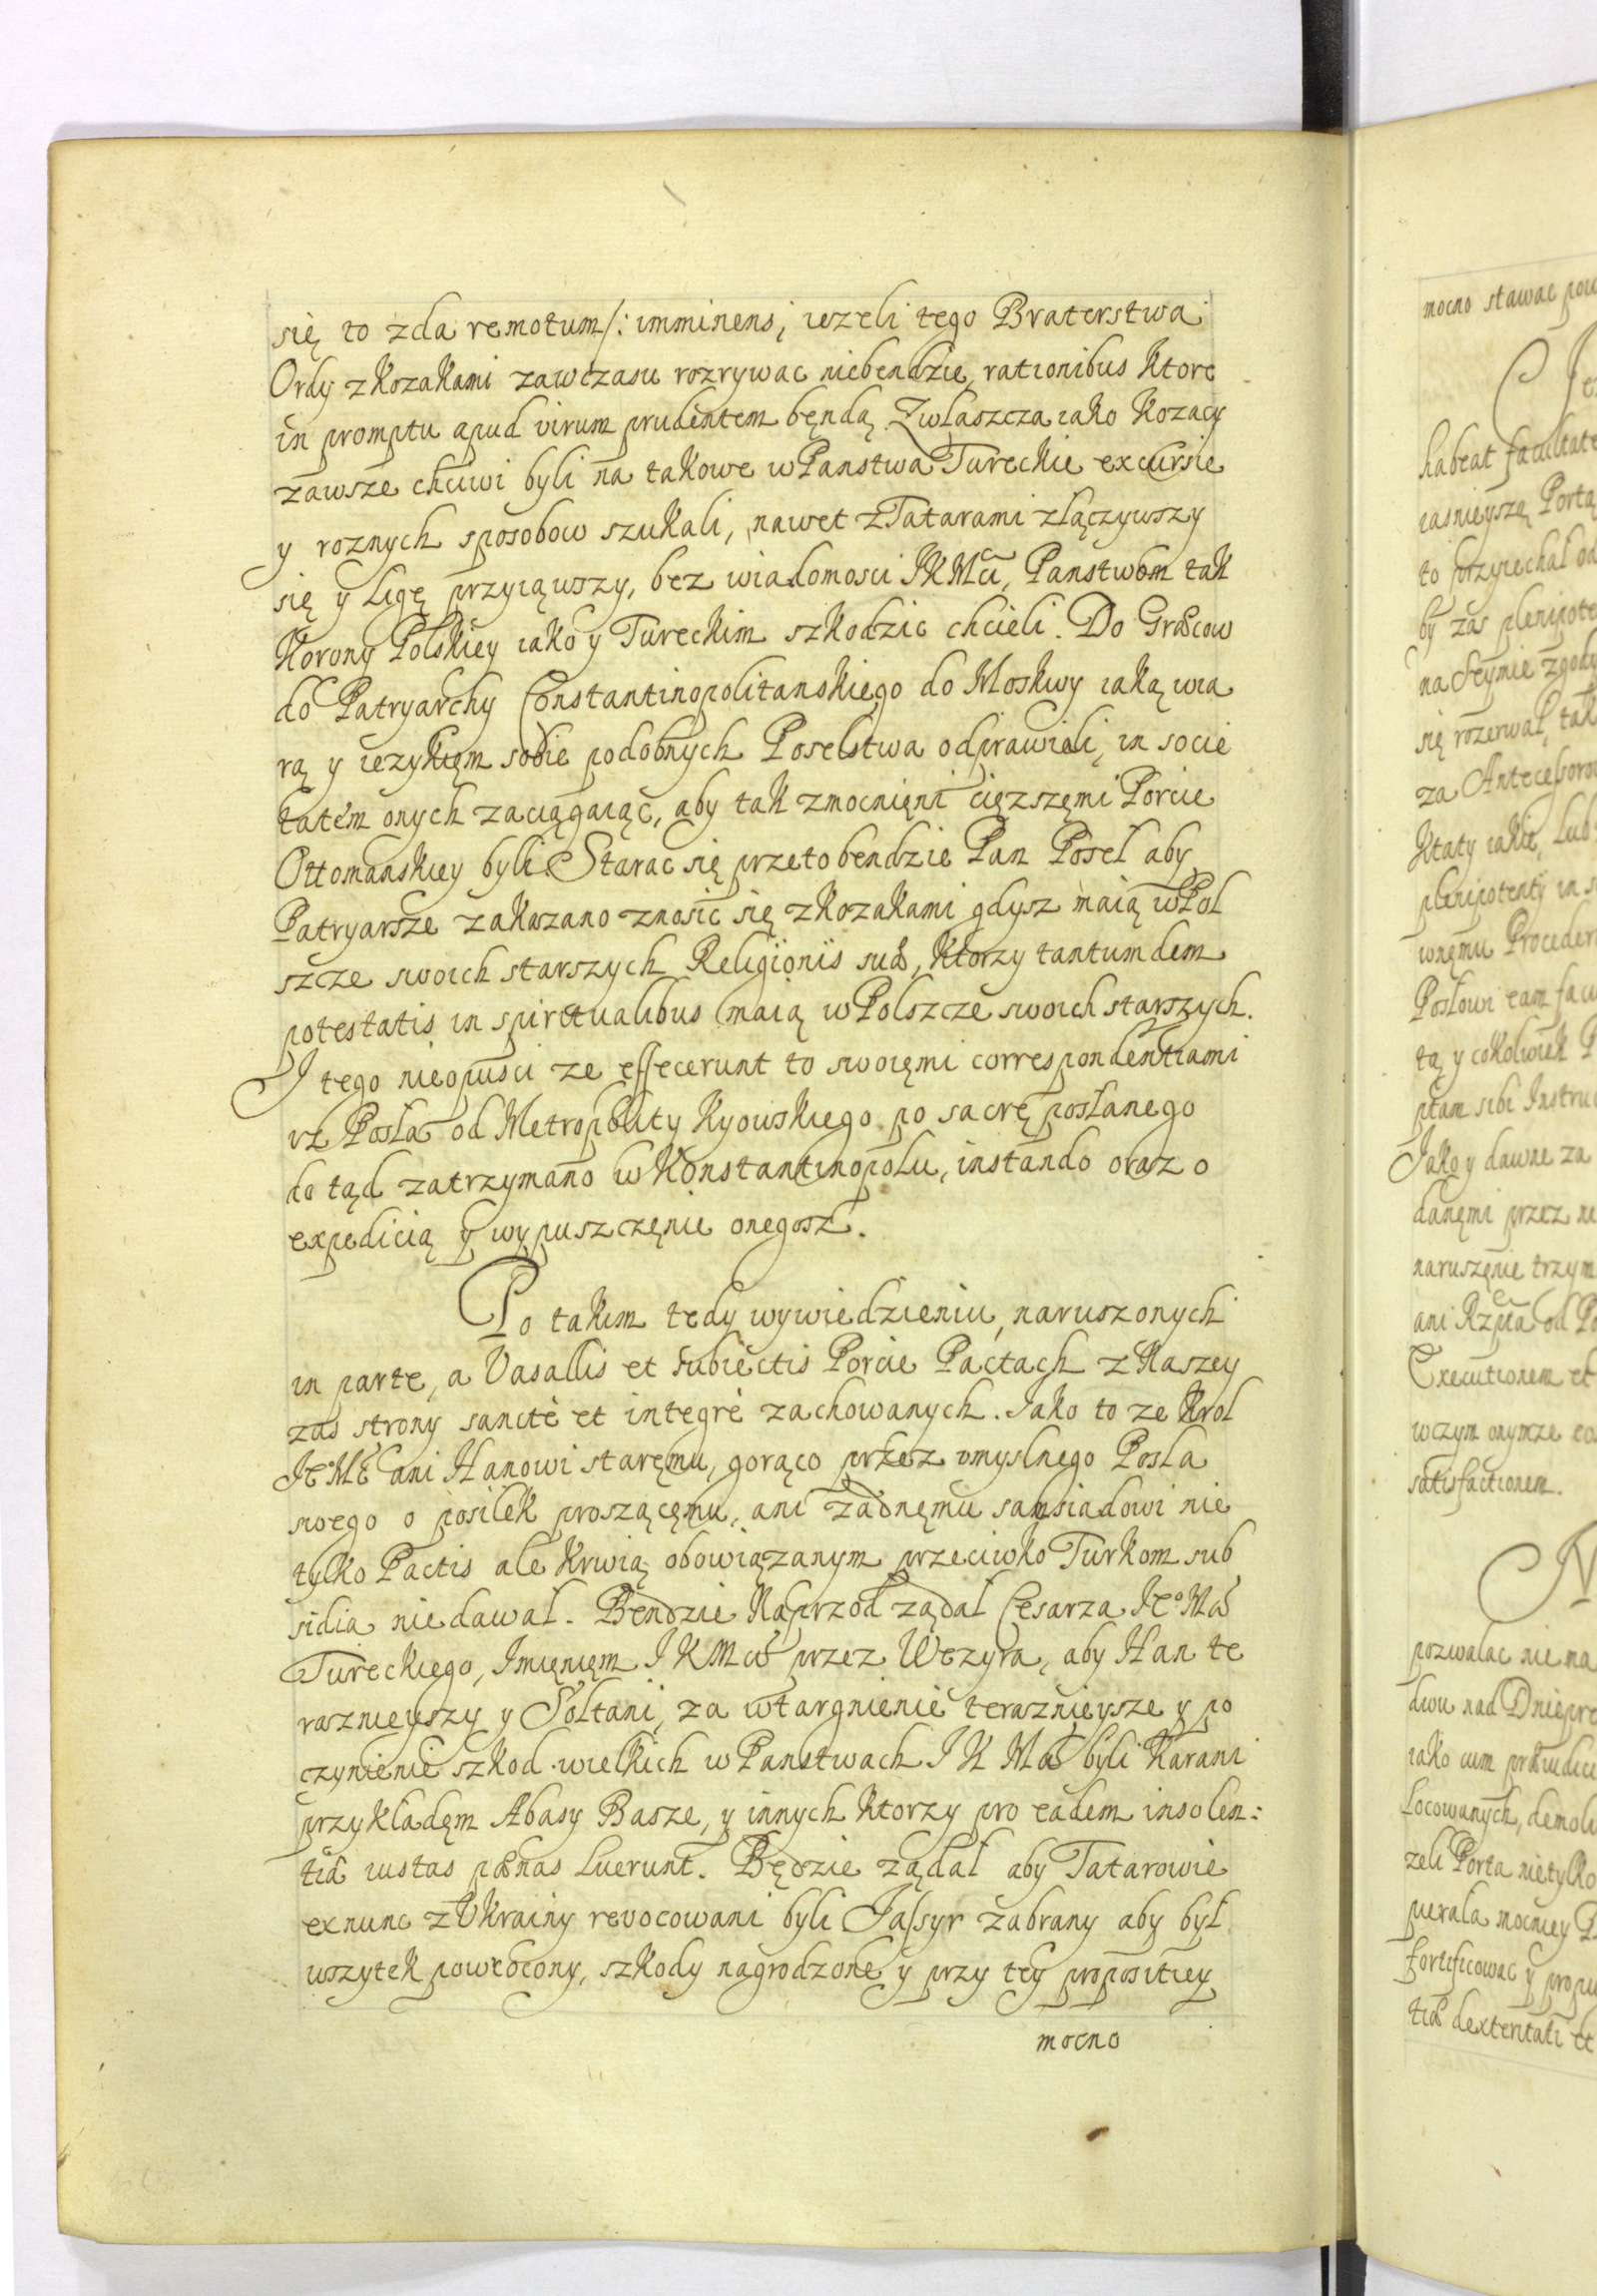 się to zda remotum /: imminens, iezeli tego Braterstwa
Ordy z Kozakami zawczasu rozrywac niebendzie, rationibus Ktore
in promptu apud virum prudentem bęndą. Zwłaszcza iako Kozacy
zawsze chciwi byli na takowe w Panstwa Tureckie excursie
y roznych sposobow szukali, nawet z Tatarami złączywszy
się y Ligę przyiąwszy, bez wiadomosci JKMci, Panstwom tak
Korony Polskiey iako y Tureckim szkodzic chcieli. Do Græcow
do Patryarchy Constantinopolitanskiego do Moskwy iaką wia
rą y ięzykięm sobie podobnych Poselstwa odprawiali, in socie
tatem onych zaciągaiąc, aby tak zmocnięni cięzszęmi Porcie
Ottomanskiey byli. Starac się przeto bendzie Pan Poseł aby
Patryarsze zakazano znosic się z Kozakami gdysz maią w Pol
szcze swoich starszych Religionis suæ, Ktorzy tantumdem
potestatis in spiritualibus maią w Polszcze swoich starszych.
I tego nieopusci ze effecerunt to swoięmi correspondentiami
yz Posła od Metropolity Kyowskiego po sacrę posłanego
do tąd zatrzymano w Konstantinopolu, instando oraz o
expedicią y wypuszczęnie onegosz.
Po takim tedy wywiedzieniu, naruszonych
in parte, a Vasallis et subiectis Porcie Pactach z Naszey
zas strony sanctè et integrè zachowanych. Jako to ze Krol
JeoMć ani Hanowi staręmu, gorąco przez vmyslnego Posła
swego o posiłek proszącęmu, ani zadnęmu sąmsiadowi nie
tylko Pactis ale Krwią obowiązanym przeciwko Turkom sub
sidia nie dawał. Bendzie Naprzod ządał Cesarza JeoMci
Tureckiego, Imięnięm JKMci przez Wezyra, aby Han te
raznieyszy y Sołtani, za wtargnienie teraznieysze y po
czynienie szkod wielkich w Panstwach JKMci byli Karani
przykładęm Abasy Basze, y innych Ktorzy pro eadem insolen:
tia iustas pœnas luerunt. Będzie ządał aby Tatarowie
exnunc z Vkrainy revocowani byli Jassyr zabrany aby był
wszytek powrocony, szkody nagrodzone y przy tey propositiey
mocno
mocno stawac
habeat
iasnieyszą Portą
to przyiechał od
by zas
na Seymie zgody
się rozerwał, tak
za
iakie, Lub
in
wnęmu
Posłowi eam
tą y cokolwiek
ptam sibi
Jako y dawne za
danęmi przez
naruszęnie
ani Rzpta od
Executionem et
wczym onymze
satisfactionem.
N
pozwalac nie na
nad
iako cum
locowanych,
zeli Porta nie tylko
mocniey
fortificowac y
dexteritati et